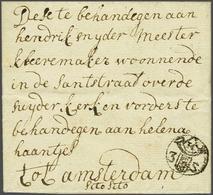 Dese te behandegen aan
hendrik snyder Meester
kleeremaker woonnende
in de Santstraat over de
Suyder kerk en vorders te
behandegen aan helena
haantjes
tot amsterdam
Cito Cito
3 S